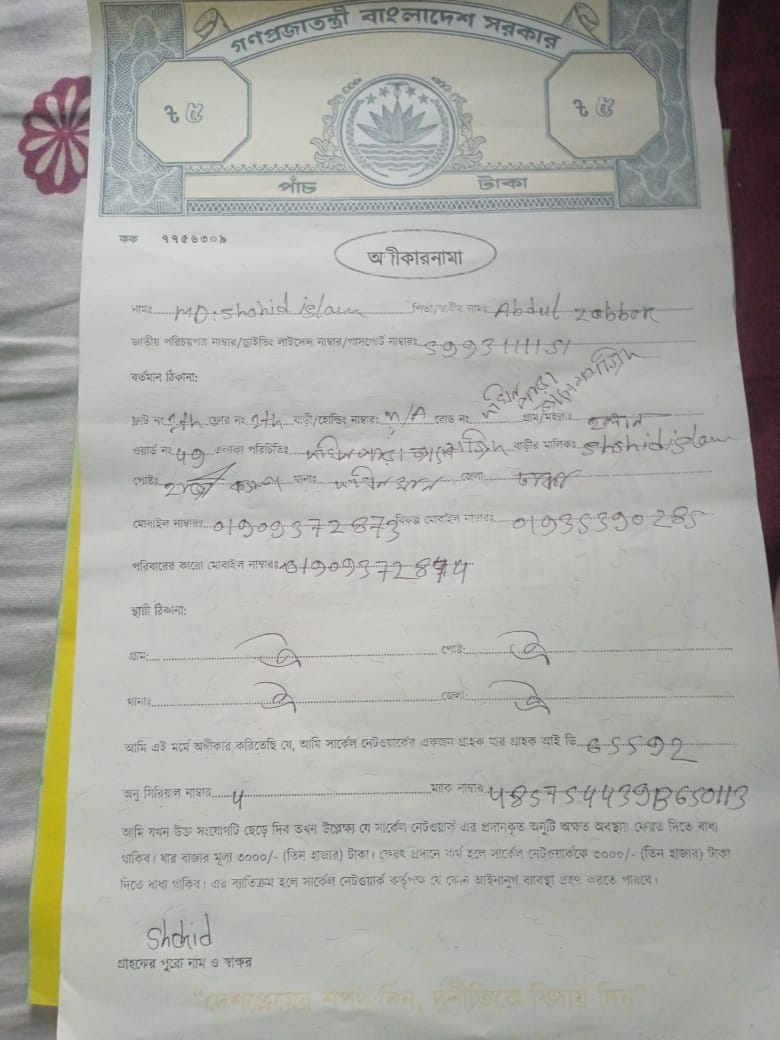 গণপ্রজাতন্ত্রী বাংলাদেশ সরকার
৳ ৫ ৳ ৫
পাঁচ টাকা
কক ৭৭৫৬৩০৯
অঙ্গীকারনামা
নামঃ MD: Shohid islam পিতা/স্বামীর নামঃ Abdul zabbar
জাতীয় পরিচয়পত্র নাম্বার/ড্রাইভিং লাইসেন্স নাম্বার/পাসপোর্ট নাম্বারঃ 5993111151
বর্তমান ঠিকানা:
ফ্লাট নং 7th ফ্লোর নং 7th বাড়ী/হোল্ডিং নাম্বারঃ N/A রোড নং দক্ষিণ পাড়া গ্রাম/মহল্লাঃ
ওয়ার্ড নং 49 এলাকা পরিচিতিঃ দক্ষিণ পাড়া বাড়ীর মালিকঃ Shohid islam
পোষ্টঃ থানাঃ দক্ষিণ খান জেলাঃ ঢাকা
মোবাইল নাম্বারঃ 01909372873 বিকল্প মোবাইল নাম্বারঃ 01935390285
পরিবারের কারো মোবাইল নাম্বারঃ
স্থায়ী ঠিকানা:
গ্রাম: ঐ পোষ্ট: ঐ
থানাঃ ঐ জেলা: ঐ
আমি এই মর্মে অঙ্গীকার করিতেছি যে, আমি সার্কেল নেটওয়ার্কের একজন গ্রাহক যার গ্রাহক আই ডি 65592
অনু সিরিয়াল নাম্বার 4 ম্যাক নাম্বার 485754439B650113
আমি যখন উক্ত সংযোগটি ছেড়ে দিব তখন উল্লেখ্য যে সার্কেল নেটওয়ার্ক এর প্রদানকৃত অনুটি অক্ষত অবস্থায় ফেরত দিতে বাধ্য
থাকিব। যার বাজার মূল্য ৩০০০/- (তিন হাজার) টাকা। ফেরৎ প্রদানে ব্যর্থ হলে সার্কেল নেটওয়ার্ককে ৩০০০/- (তিন হাজার) টাকা
দিতে বাধ্য থাকিব। এর ব্যতিক্রম হলে সার্কেল নেটওয়ার্ক কর্তৃপক্ষ যে কোন আইনানুগ ব্যবস্থা গ্রহণ করতে পারবে।
Shohid
গ্রাহকের পুরো নাম ও স্বাক্ষর
"দেশপ্রেমের শপথ নিন, দুর্নীতিকে বিদায় দিন"